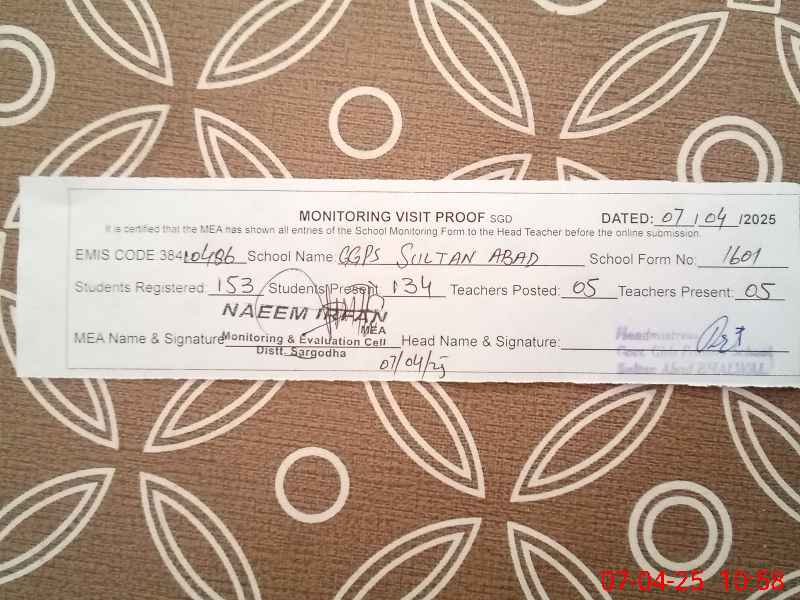 MONITORING VISIT PROOF SGD DATED: 07/04/2025
It is certified that the MEA has shown all entries of the School Monitoring Form to the Head Teacher before the online submission.
EMIS CODE 38410486 School Name GGPS SULTAN ABAD School Form No: 1601
Students Registered: 153 Students Present: 134 Teachers Posted: 05 Teachers Present: 05
NAEEM IRFAN
MEA
MEA Name & Signature Monitoring & Evaluation Cell Head Name & Signature:
Distt. Sargodha
07/04/25
Headmistress
Govt. Girls School
Sultan Abad BHALWAL
07-04-25 10:58